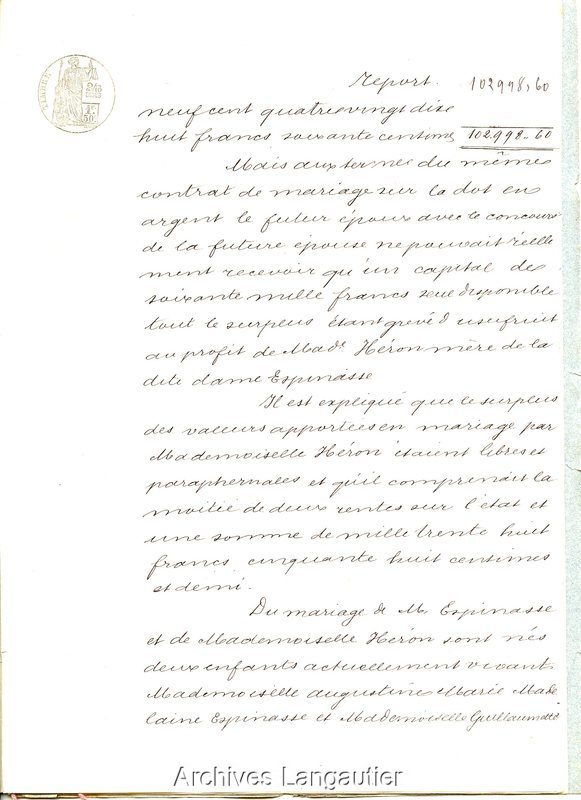 Report. 102998,60
neuf cent quatrevingt dix
huit francs soixante centimes 102.998.60
Mais aux termes du même
contrat de mariage sur la dot en
argent le futur époux avec le concours
de la future épouse ne pouvait réelle
ment recevoir qu'un capital de
soixante mille francs seul disponible
tout le surplus étant grevé d'usufruit
au profit de Made Héron mère de la
dite dame Espinasse
Il est expliqué que le surplus
des valeurs apportées en mariage par
Mademoiselle Héron étaient libres et
paraphernales et qu'il comprenait la
moitié de deux rentes sur l'état et
une somme de mille trente huit
francs cinquante huit centimes
et demi.
Du mariage de M. Espinasse
et de Mademoiselle Héron sont nés
deux enfants actuellement vivant
Mademoiselle augustine Marie Made
laine Espinasse et Mademoiselle Guillaumette
TIMBRE
Archives Langautier